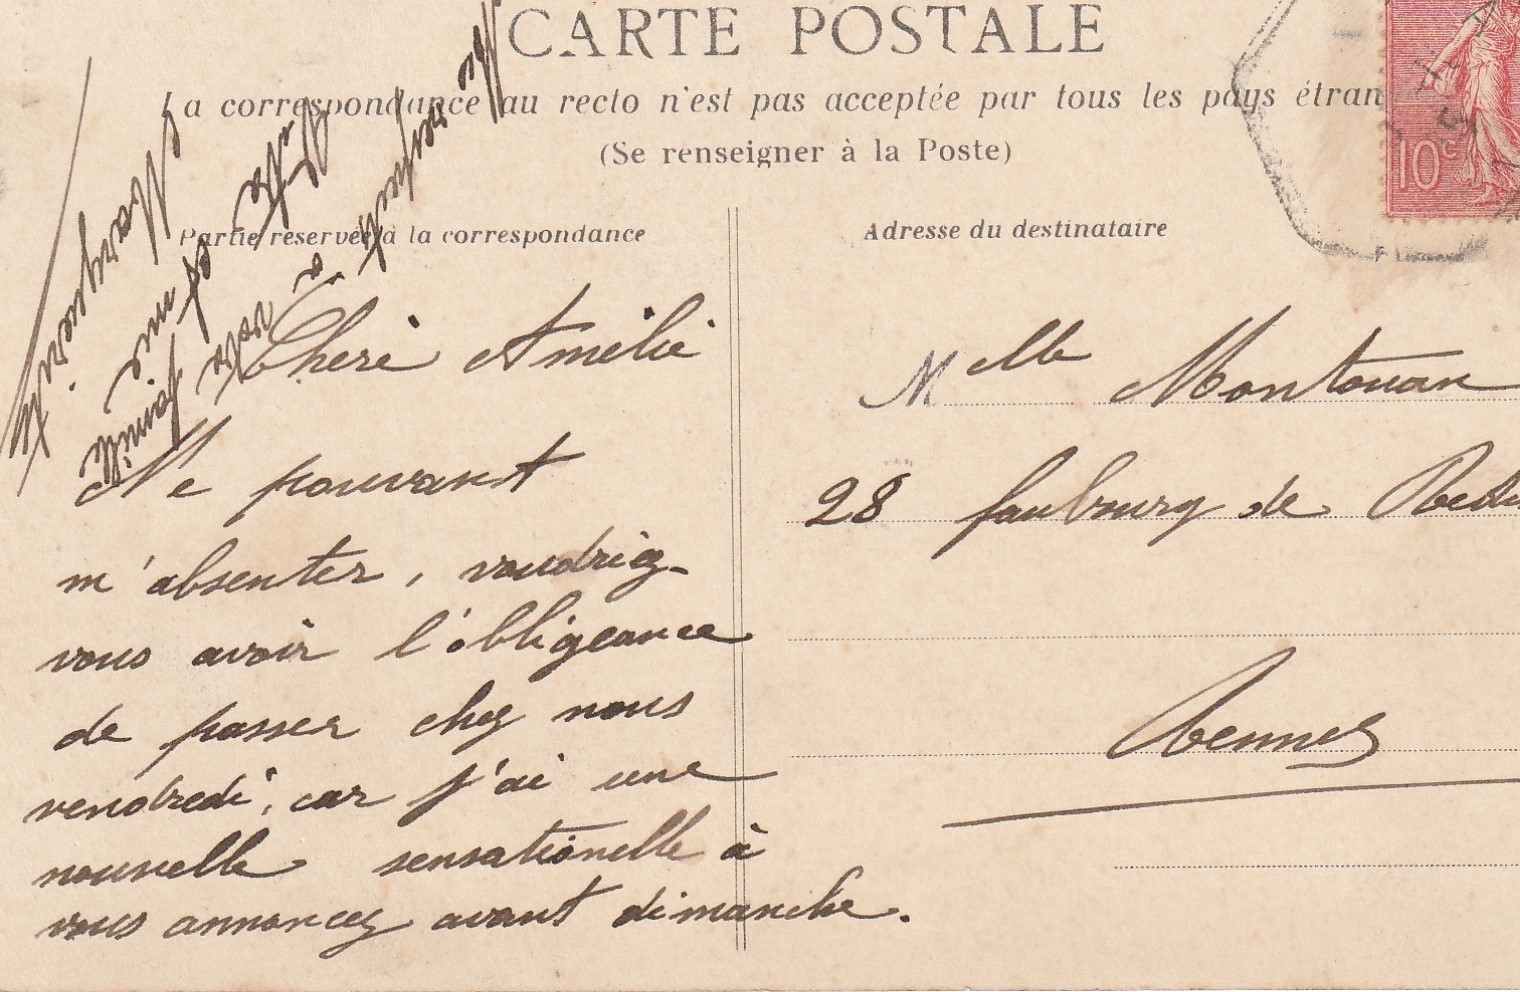 CARTE POSTALE
La correspondance au recto n'est pas acceptée par tous les pays étran
(Se renseigner à la Poste)
Partie réservée à la correspondance
Adresse du destinataire
10c
Cheri Amélie
Ne pouvant
m'absenter, voudriez-
vous avoir l'obligeance
de passer chez nous
vendredi, car j'ai une
nouvelle sensationelle à
vous annoncez avant dimanche.
Mes respects
à votre famille
Melle Montouan
28 faubourg de Redon
Rennes